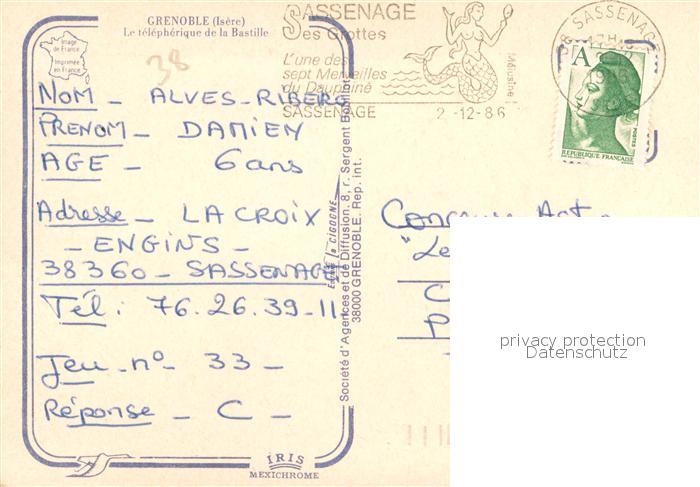 GRENOBLE (Isère)
Le téléphérique de la Bastille
Image
de France
Imprimée
en France
38
SASSENAGE
Ses Grottes
L'une des
sept Merveilles
du Dauphiné
SASSENAGE
Mélusine
2-12-86
38 SASSENAGE
A
POSTES
REPUBLIQUE FRANÇAISE
NOM - ALVES-RIBERO
PRENOM - DAMIEN
AGE - 6 ans
Adresse - LA CROIX
- ENGINS -
38360 - SASSENAGE
Tél : 76.26.39-11
Jeu - nº - 33 -
Réponse - C -
la CIGOGNE
Société d'Agences et de Diffusion, 8, r. Sergent Bobillot
38000 GRENOBLE. Rep. int.
Concours
privacy protection
Datenschutz
IRIS
MEXICHROME